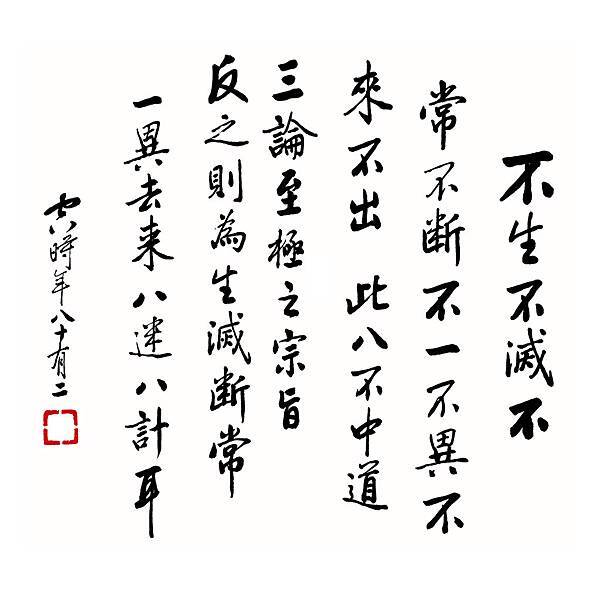 不生不滅不
常不断不一不異不
來不出 此八不中道
三論至極之宗旨
反之則為生滅断常
一異去来八迷八計耳
時年八十有二